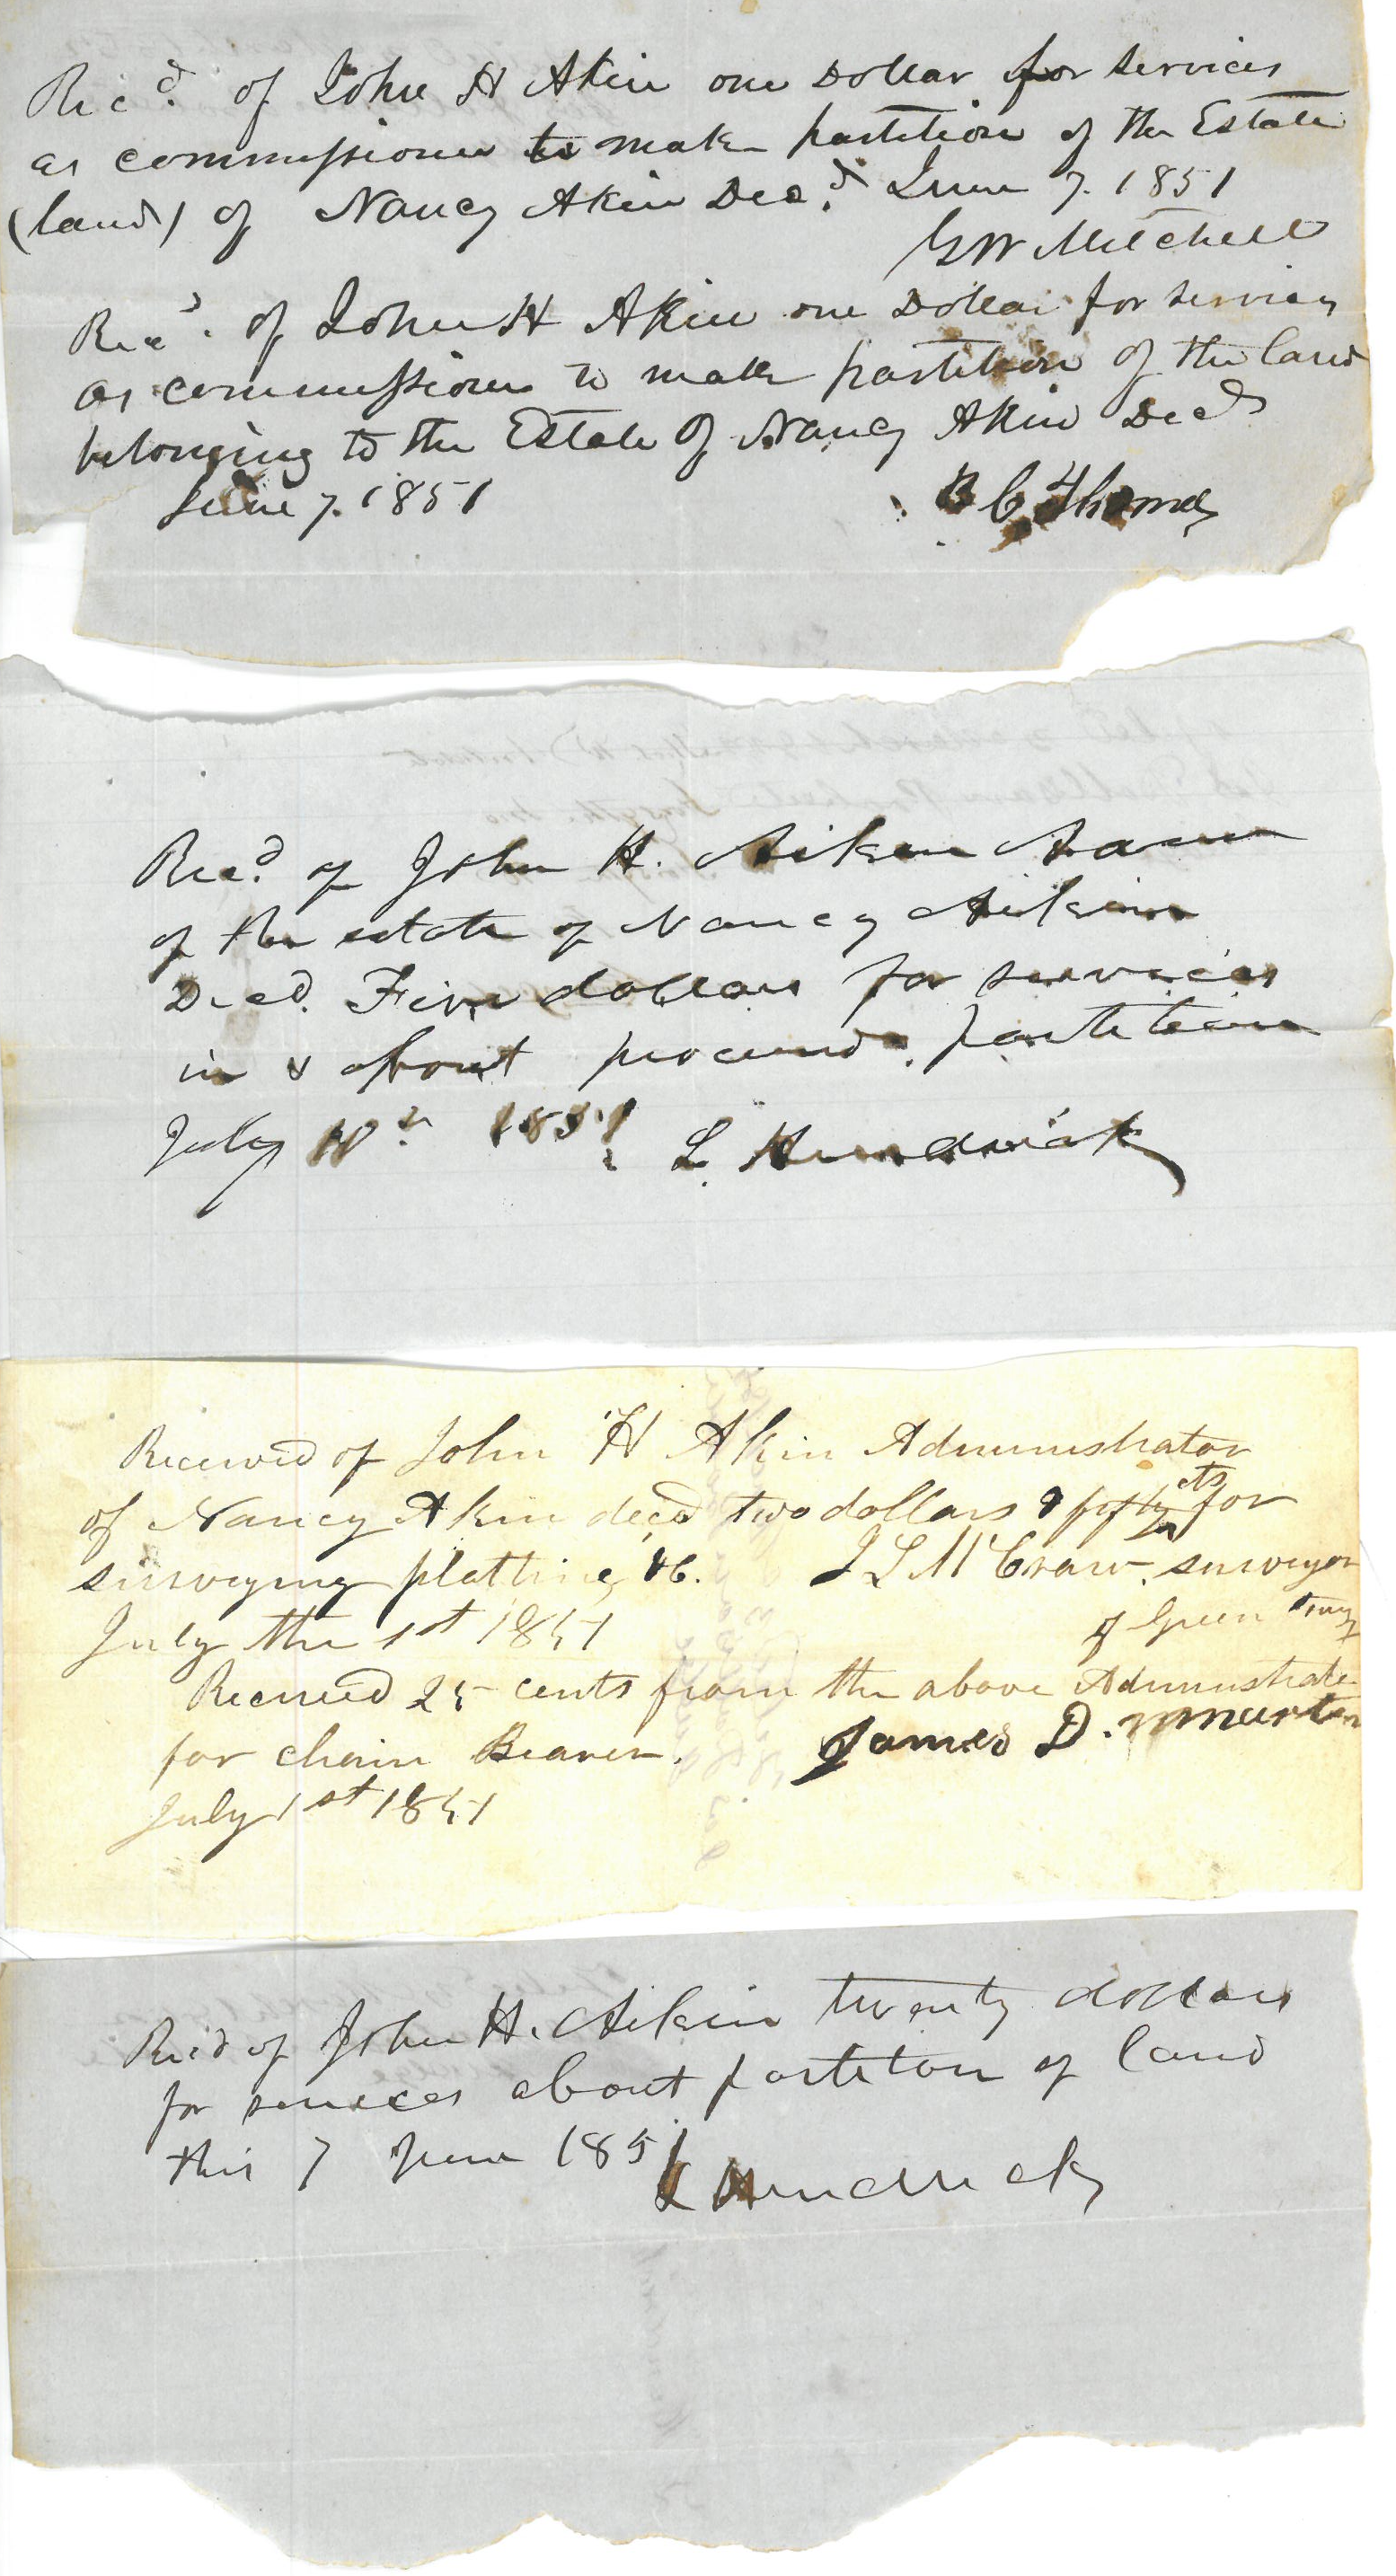 Recd. of John H Akin one Dollar for services
as commissioner to make partition of the Estate
(land) of Nancy Akin Decd. June 7. 1851
GW Mitchell
Recd. of John H Akin one Dollar for services
as commissioner to make partition of the land
belonging to the Estate of Nancy Akin Decd
June 7. 1851
B C Thomas
Recd. of John H. Aikin
of the estate of Nancy Aikin
Decd. Five dollars for services
in & about partition
July 1851 L. Hendrick
Received of John H Akin Administrator
of Nancy Akin decd two dollars & fifty cts for
surveying platting &c. J L McCraw surveyor
July the 1st 1851 of Green
Received 25 cents from the above Administrator
for chain Bearer. James D. Martin
July 1st 1851
Recd of John H. Aikin twenty dollars
for services about partiton of land
this 7 June 1851
L Hendrick